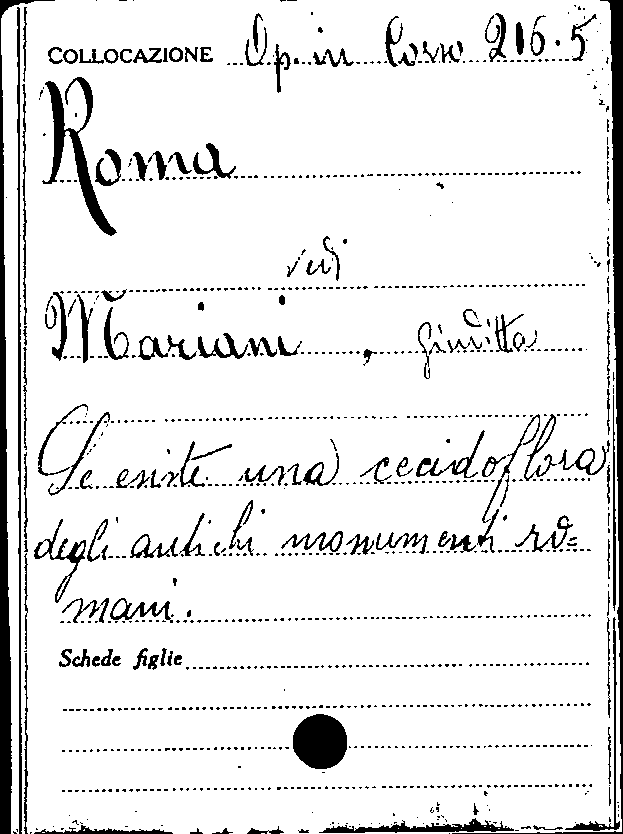 COLLOCAZIONE Op. in Corso 216.5
Roma
vedi
Mariani, Giuditta
Se esiste una cecidoflora
degli antichi monumenti ro=
mani.
Schede figlie